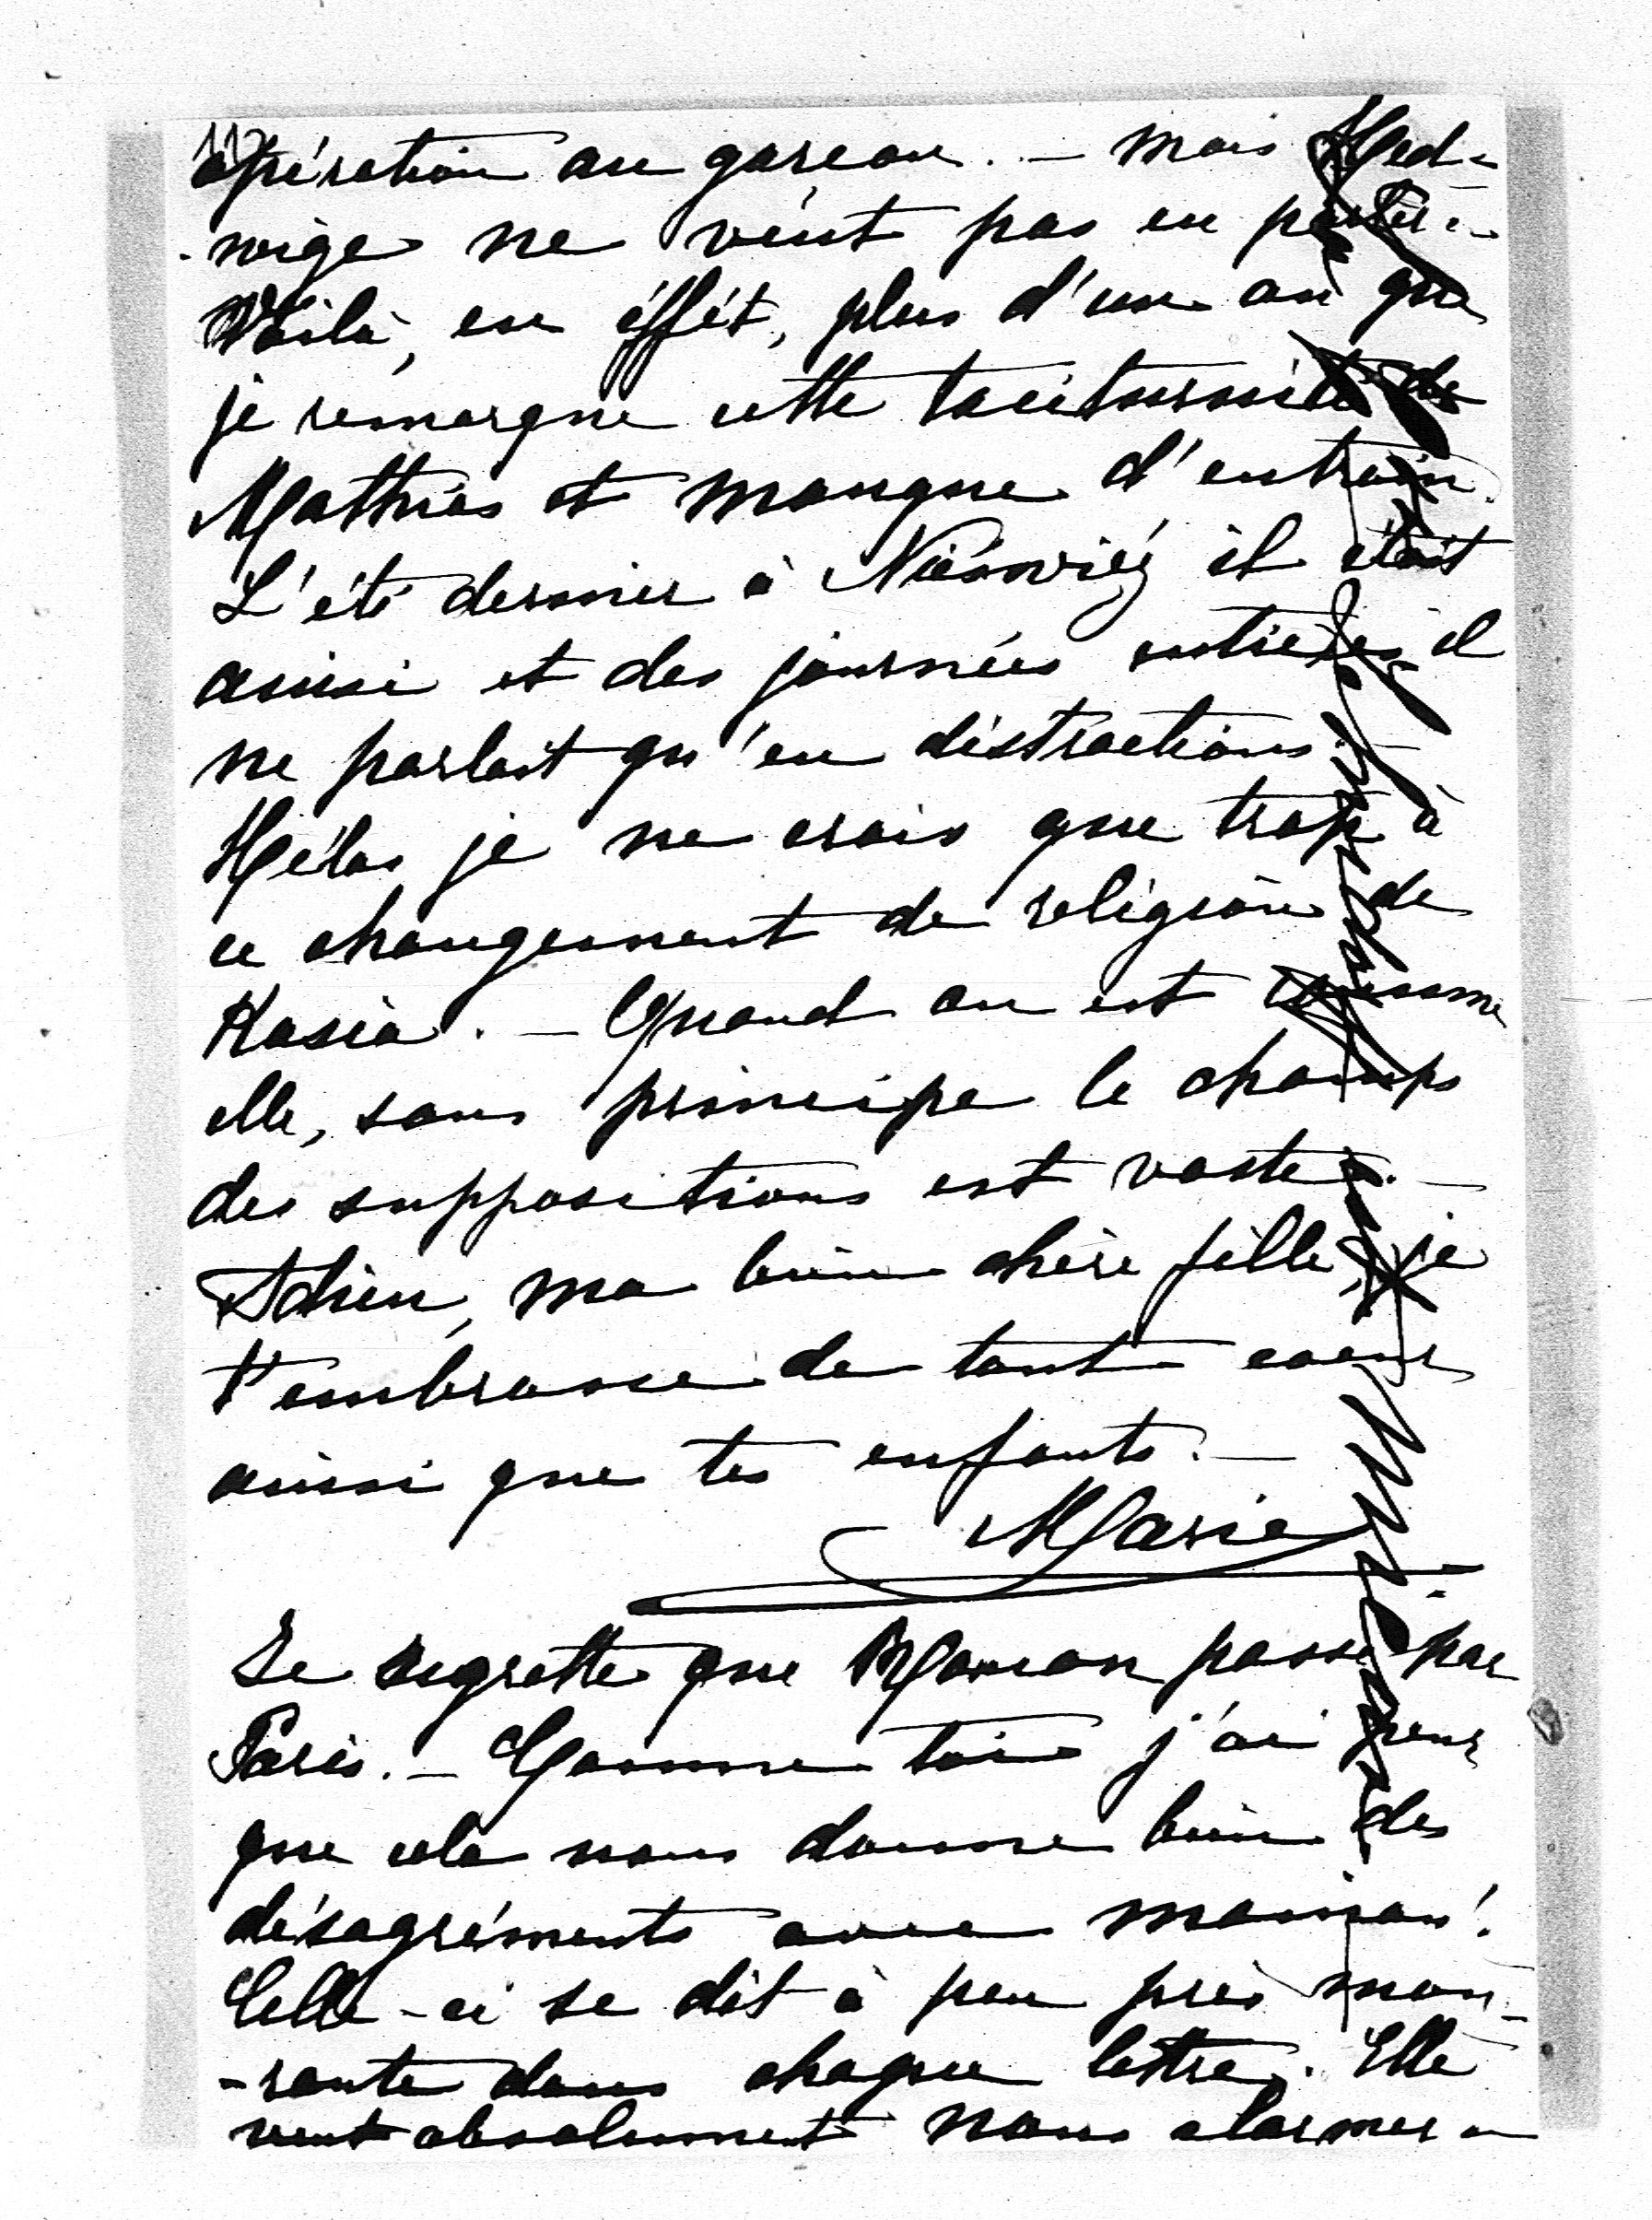 117
opération au garçon. — mais Hed-
-wige ne véut pas en parler.-
Voilà, en éffét, plus d'un an que
je remarque cette taciturnité de
Mathias et manque d'entrain.
L'été dernier à Nieświéz il était
ainsi et des journées entières il
ne parlait qu'en distractions. —
Hélas je ne crois que trop à
ce changement de religion de
Kasia. — Quand on est comme
elle, sans principe le champs
des suppositions est vaste. —
Adieu, ma bien chère fille, je
t'embrasse de tout coeur
ainsi que tes enfants. —
Marie
Je regrette que Maman passe par
Paris. — Comme toi j'ai peur
que cela nous donne bien des
désagréments avec maman!
Celle-ci se dit à peu près mou-
-rante dans chaque lettre. Elle
veut absolument nous alarmer -